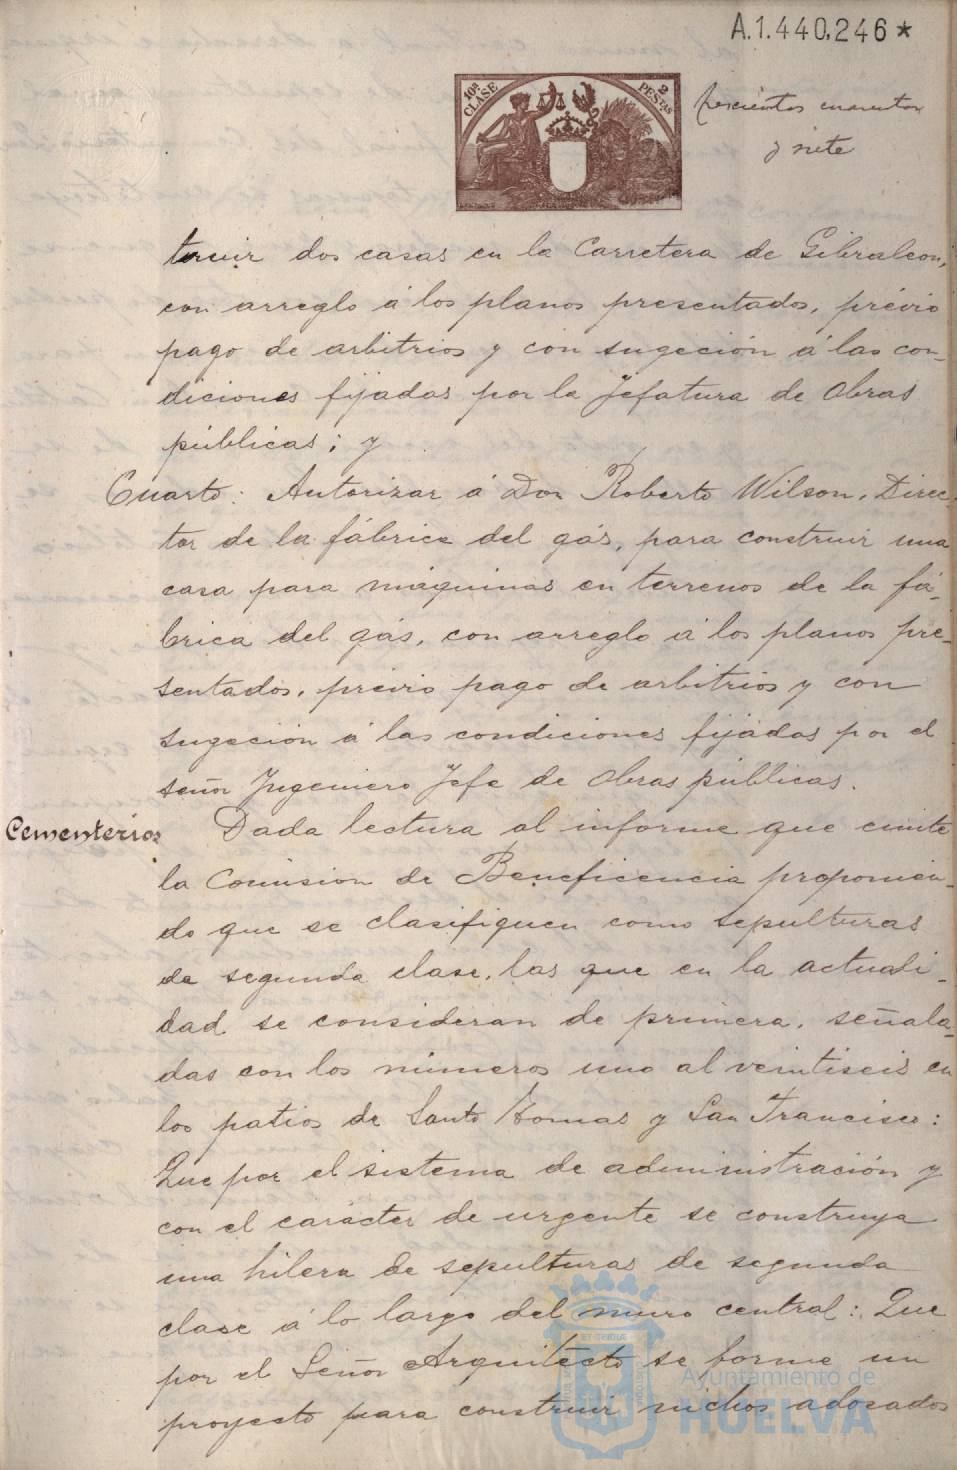 A.1.440,246*
10ª CLASE
2 PESTAS
trescientos cuarenta
y siete
truir dos casas en la Carretera de Gibraleon,
con arreglo á los planos presentados, prévio
pago de arbitrios y con sugeción á las con-
diciones fijadas por la Jefatura de Obras
públicas; y
Cuarto: Autorizar á Don Roberto Wilson, Direc-
tor de la fábrica del gás, para construir una
casa para máquinas en terrenos de la fá-
brica del gás, con arreglo á los planos pre-
sentados, prévio pago de arbitrios y con
sugeción á las condiciones fijadas por el
señor Ingeniero Jefe de Obras públicas.
Cementerios Dada lectura al informe que emite
la Comision de Beneficencia proponien-
do que se clasifiquen como sepulturas
de segunda clase, las que en la actuali-
dad se consideran de primera, señala-
das con los números uno al veintiseis en
los patios de Santo Tomas y San Francisco:
Que por el sistema de administración y
con el carácter de urgente se construya
una hilera de sepulturas de segunda
clase á lo largo del muro central: Que
por el Señor Arquitecto se forme un
proyecto para construir nichos adosados
Ayuntamiento de
HUELVA